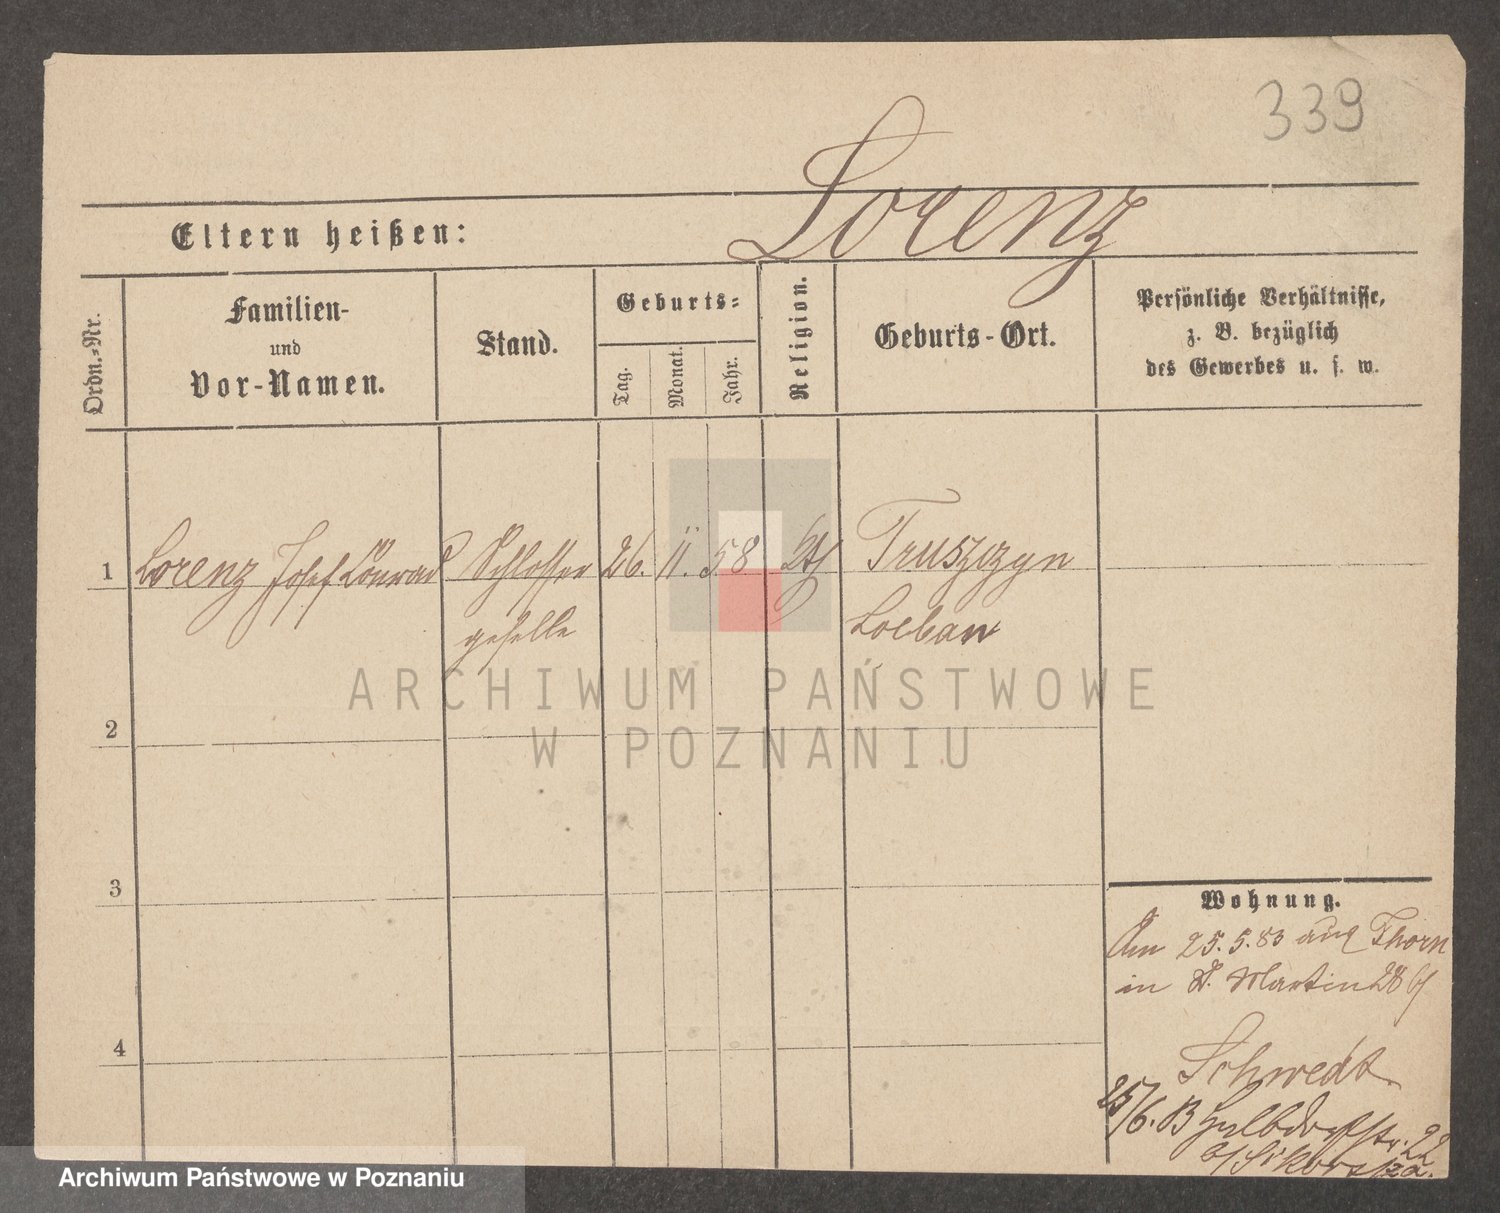 339
Lorenz
Eltern heißen:
Ordn.-Nr.
Familien-
und
Vor-Namen.
Stand.
Geburts-
Tag.
Monat.
Jahr.
Religion.
Geburts-Ort.
Persönliche Verhältnisse,
z. B. bezüglich
des Gewerbes u. s. w.
1 Lorenz Josef Conrad Schlosser 26. 11. 58 kth Truszczyn
geselle Loebau
ARCHIWUM PAŃSTWOWE
W POZNANIU
2
3
4
Wohnung.
Am 25.5.83 aus Thorn
in St. Martin 28 b/
Schwedt
25/6. 83 Halbdorfstr. 22
b/ Sikorska.
Archiwum Państwowe w Poznaniu